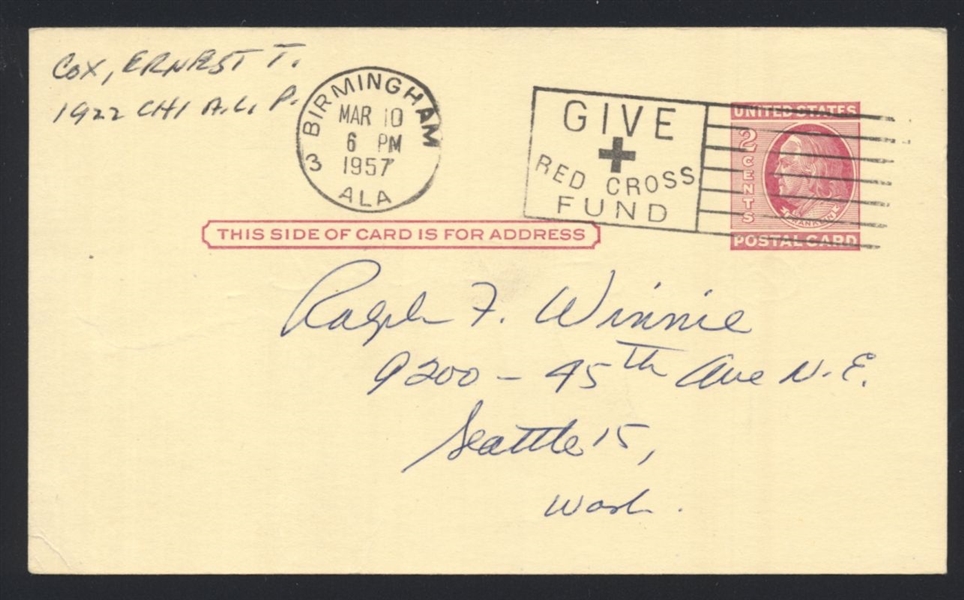 COX, ERNEST T.
1922 CHI A.L. P.
BIRMINGHAM
MAR 10
6 PM
1957
3
ALA
GIVE
RED CROSS
FUND
UNITED STATES
2
CENTS
POSTAL CARD
THIS SIDE OF CARD IS FOR ADDRESS
Ralph F. Winnie
9200 - 45th Ave N.E.
Seattle 15,
Wash.